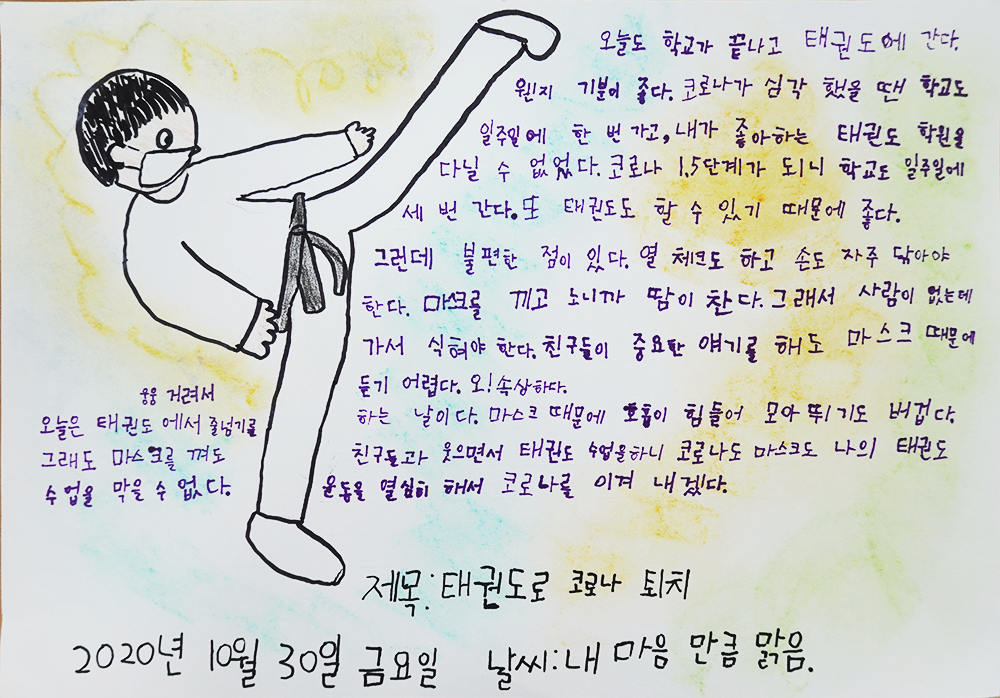 오늘도 학교가 끝나고 태권도에 간다.
웬지 기분이 좋다. 코로나가 심각 했을 땐 학교도
일주일에 한 번 가고, 내가 좋아하는 태권도 학원을
다닐 수 없었다. 코로나 1.5단계가 되니 학교도 일주일에
세 번 간다. 또 태권도도 할 수 있기 때문에 좋다.
그런데 불편한 점이 있다. 열 체크도 하고 손도 자주 닦아야
한다. 마스크를 끼고 노니까 땀이 찬다. 그래서 사람이 없는데
가서 식혀야 한다. 친구들이 중요한 얘기를 해도 마스크 때문에
웅웅 거려서 듣기 어렵다. 오! 속상하다.
오늘은 태권도 에서 줄넘기를 하는 날이다. 마스크 때문에 호흡이 힘들어 모아 뛰기도 버겁다.
그래도 마스크를 껴도 친구들과 웃으면서 태권도 수업을하니 코로나도 마스크도 나의 태권도
수업을 막을 수 없다. 운동을 열심히 해서 코로나를 이겨 내겠다.
제목: 태권도로 코로나 퇴치
2020년 10월 30일 금요일 날씨: 내 마음 만큼 맑음.